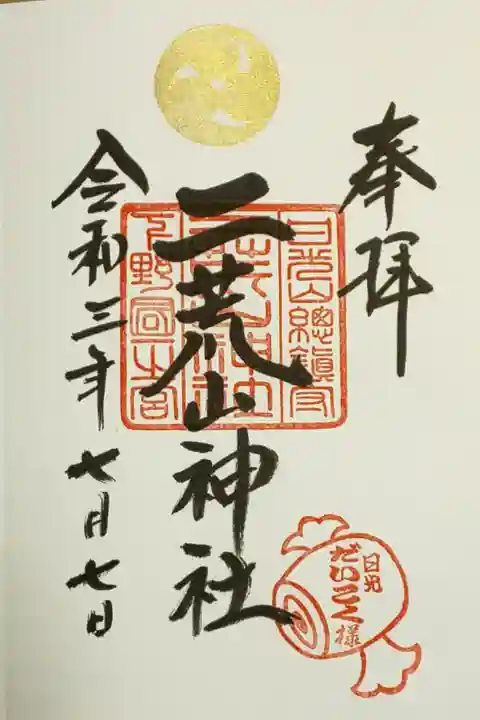 奉拝
二荒山神社
令和三年七月七日
日光山總鎮守
下野國一之宮
日光
だいこく様